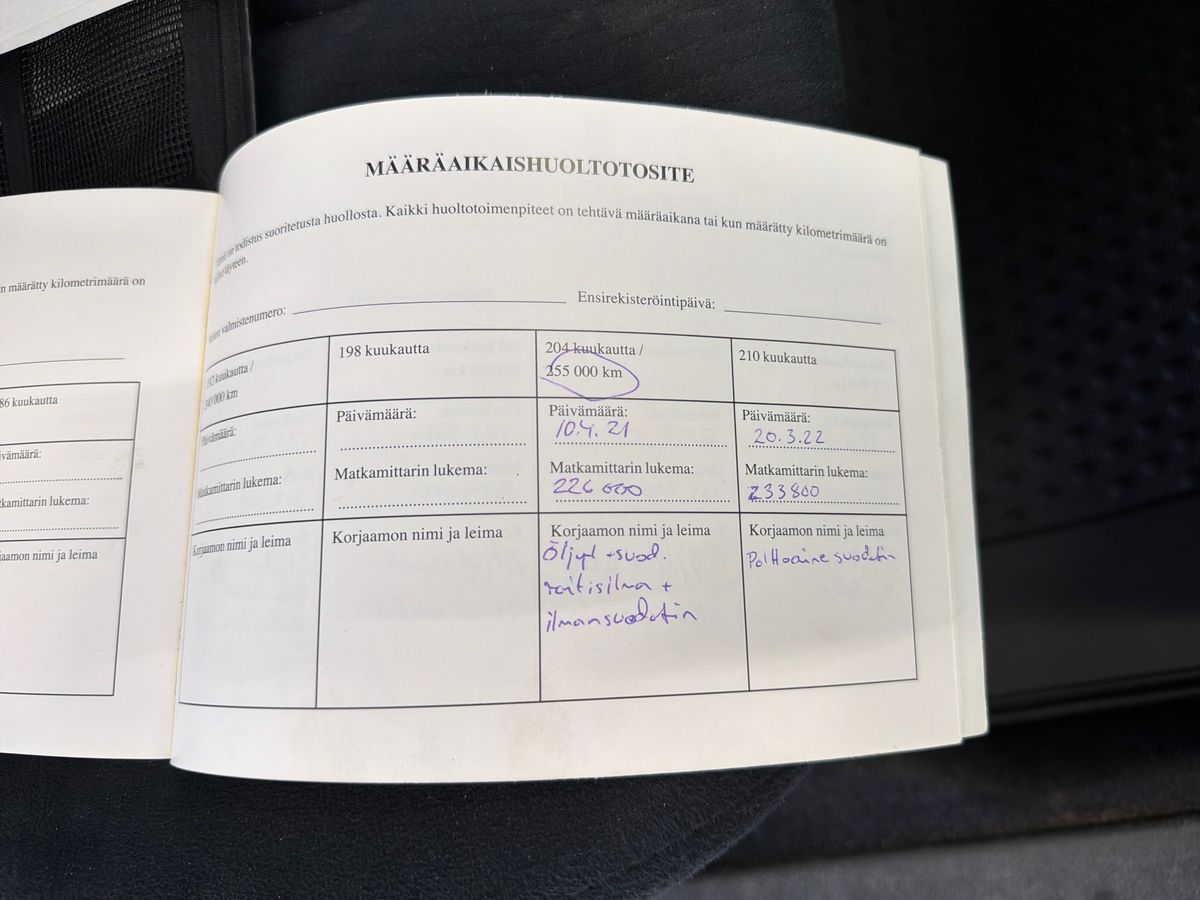 MÄÄRÄAIKAISHUOLTOTOSITE
on todistus suoritetusta huollosta. Kaikki huoltotoimenpiteet on tehtävä määräaikana tai kun määrätty kilometrimäärä on
täyteen.
valmistenumero: Ensirekisteröintipäivä:
n määrätty kilometrimäärä on
86 kuukautta
ivämäärä:
tkamittarin lukema:
jaamon nimi ja leima
192 kuukautta /
240 000 km
Päivämäärä:
Matkamittarin lukema:
Korjaamon nimi ja leima
198 kuukautta
Päivämäärä:
Matkamittarin lukema:
Korjaamon nimi ja leima
204 kuukautta /
255 000 km
Päivämäärä:
10.4. 21
Matkamittarin lukema:
226 000
Korjaamon nimi ja leima
Öljyt + suod.
raitisilma +
ilmansuodatin
210 kuukautta
Päivämäärä:
20.3.22
Matkamittarin lukema:
233800
Korjaamon nimi ja leima
Polttoainesuodatin